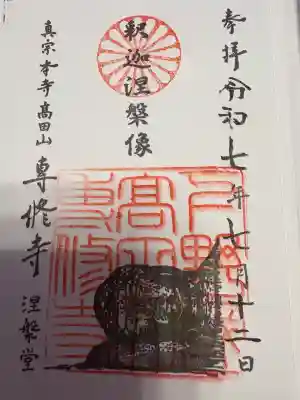 奉拝 令和七年七月十二日
釈迦涅槃像
真宗本寺高田山 専修寺 涅槃堂